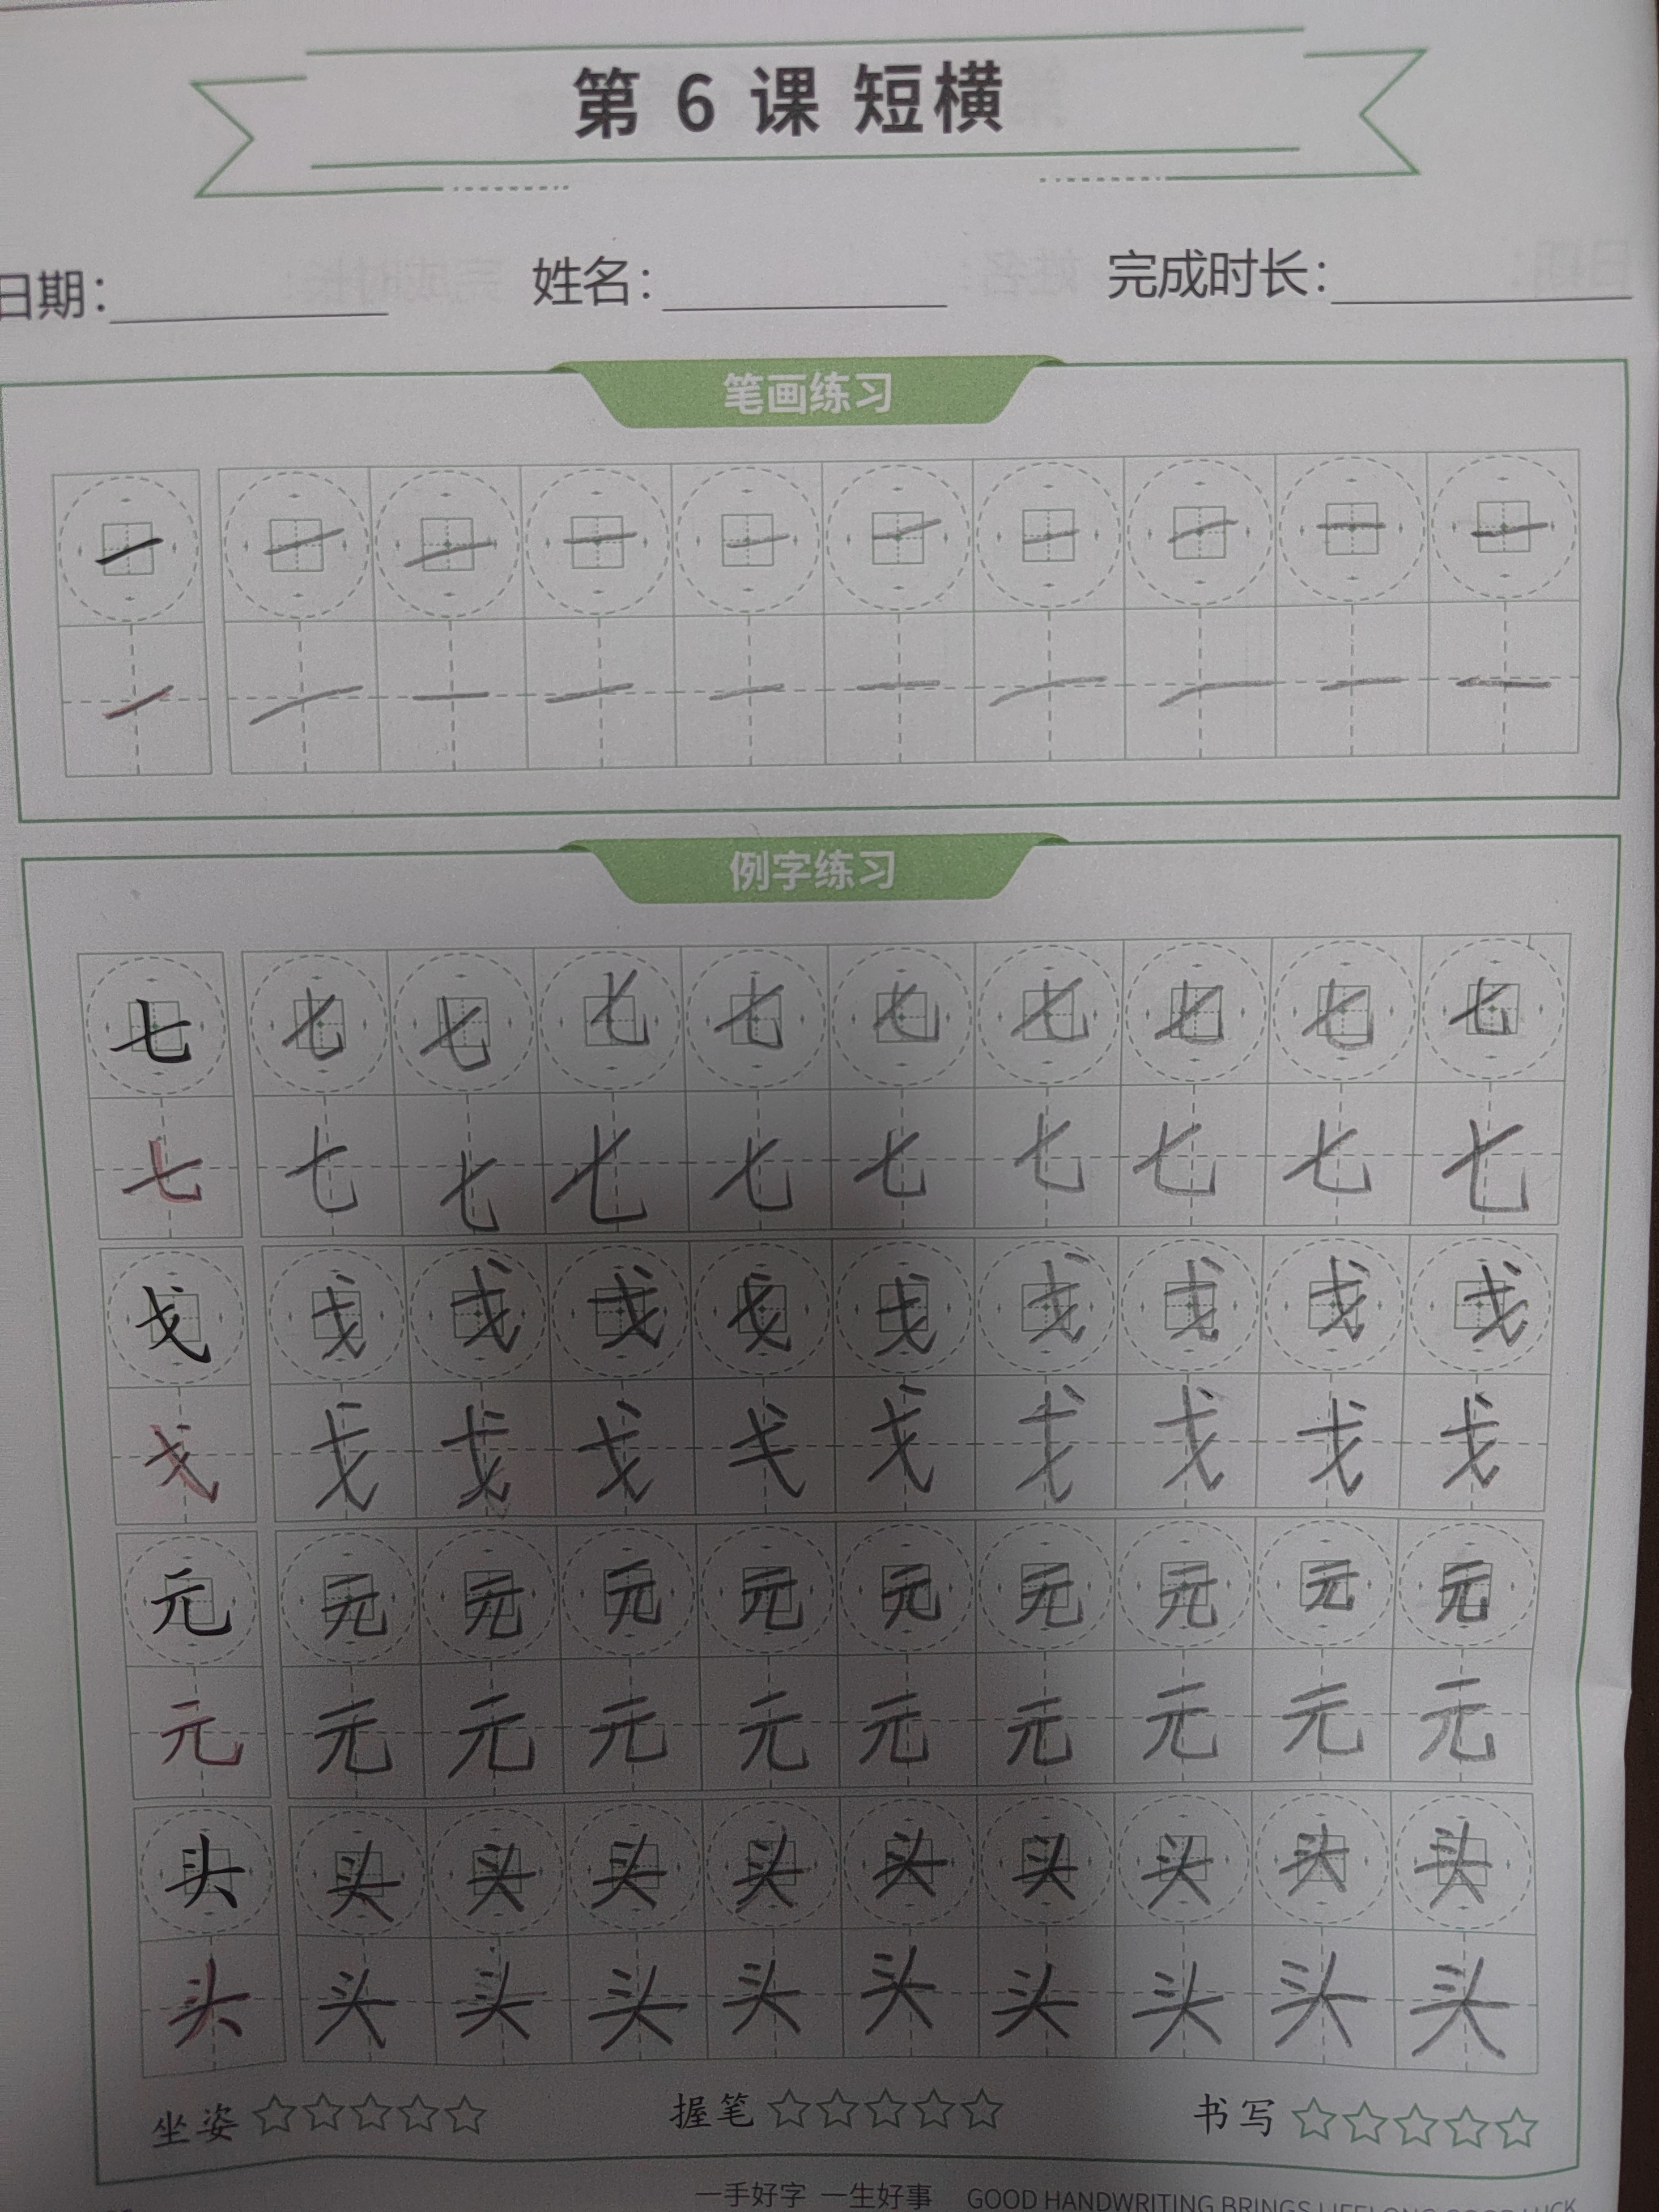 第 6 课 短横
日期： 姓名： 完成时长：
笔画练习
一 一 一 一 一 一 一 一 一 一
一 一 一 一 一 一 一 一 一 一
例字练习
七 七 七 七 七 七 七 七 七 七
七 七 七 七 七 七 七 七 七 七
戈 戈 戈 戈 戈 戈 戈 戈 戈 戈
戈 戈 戈 戈 戈 戈 戈 戈 戈 戈
元 元 元 元 元 元 元 元 元 元
元 元 元 元 元 元 元 元 元 元
头 头 头 头 头 头 头 头 头 头
头 头 头 头 头 头 头 头 头 头
坐姿 ☆☆☆☆☆ 握笔 ☆☆☆☆☆ 书写 ☆☆☆☆☆
一手好字 一生好事 GOOD HANDWRITING BRINGS LIFELONG GOOD LUCK